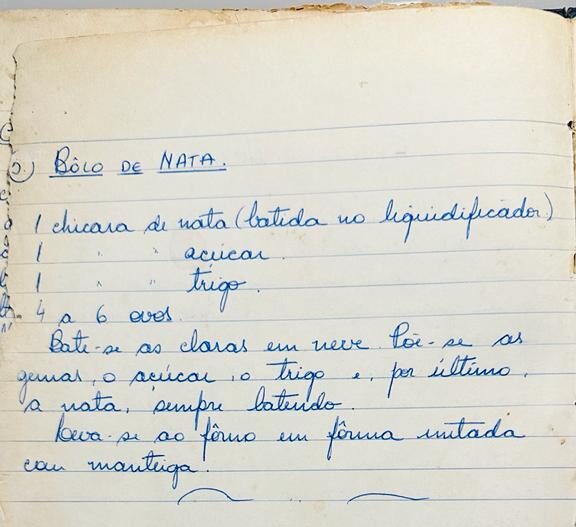 5) BÔLO DE NATA.
1 chicara de nata (batida no liquidificador)
1 " " açúcar.
1 " " trigo.
4 a 6 ovos.
Bate-se as claras em neve. Põe-se as
gemas, o açúcar, o trigo e, por último,
a nata, sempre batendo.
Leva-se ao fôrno em fôrma untada
com manteiga.